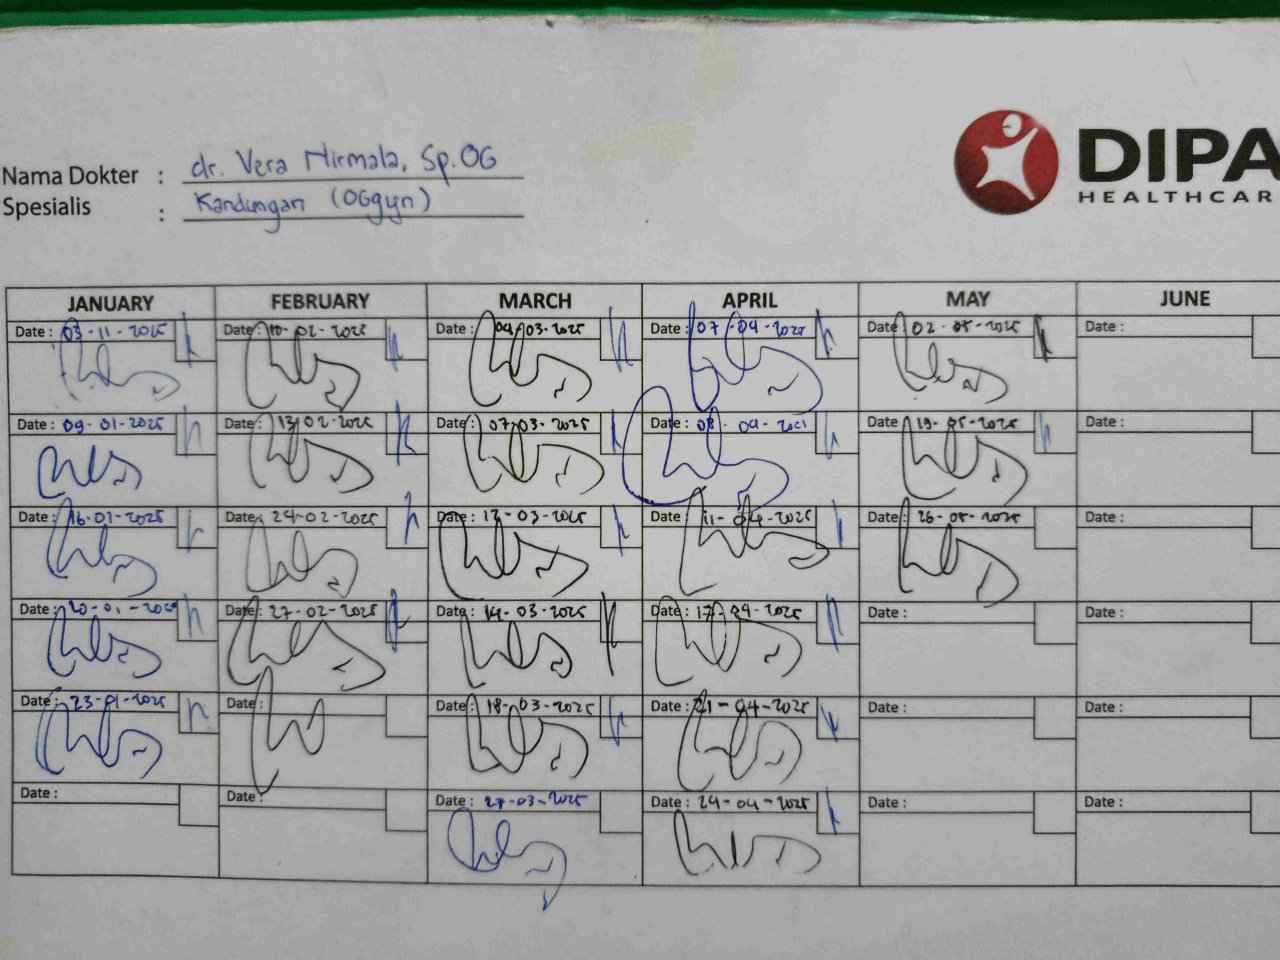 Nama Dokter : dr. Vera Nirmala, Sp.OG
Spesialis : Kandungan (OGgyn)
DIPA
HEALTHCAR
JANUARY FEBRUARY MARCH APRIL MAY JUNE
Date : 03-11-2025 Date : 10-02-2025 Date : 04-03-2025 Date : 07-04-2025 Date : 02-05-2025 Date :
Date : 09-01-2025 Date : 13-02-2025 Date : 07-03-2025 Date : 08-04-2025 Date : 19-05-2025 Date :
Date : 16-01-2025 Date : 24-02-2025 Date : 12-03-2025 Date : 11-04-2025 Date : 26-05-2025 Date :
Date : 20-01-2025 Date : 27-02-2025 Date : 14-03-2025 Date : 17-04-2025 Date : Date :
Date : 23-01-2025 Date : Date : 18-03-2025 Date : 21-04-2025 Date : Date :
Date : Date : Date : 27-03-2025 Date : 24-04-2025 Date : Date :